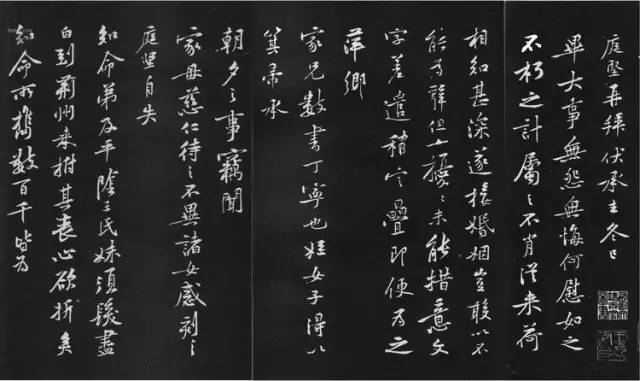 庭堅再拜伏承去冬已
畢大事無怨無悔何慰如之
不朽之計屬之不肖從來荷
相知甚深遂接婚姻豈敢以不
能為辭但擾〻未能措意文
字差遣稍定疊即便為之
萍鄉
家兄數書丁寧也姪女子得以
箕帚承
朝夕之事竊聞
家母慈仁待之不異諸女感刻〻
庭堅自失
知命弟及平陰王氏妹須髮盡
白到荊州來拊其喪心欲折矣
知命所攜數百千皆為